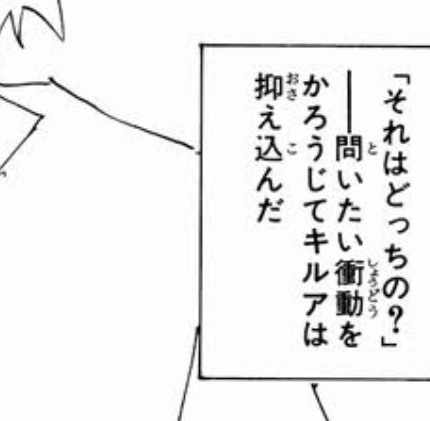 「それはどっちの？」
──問いたい衝動を
かろうじてキルアは
抑え込んだ